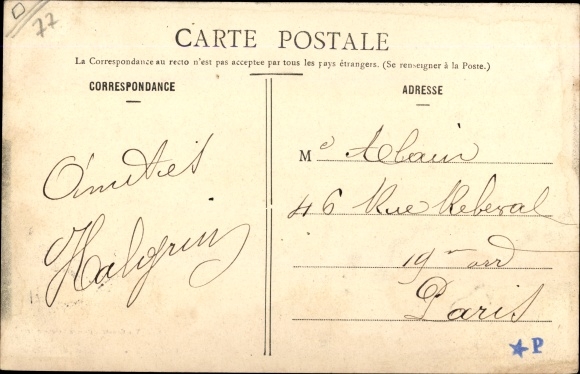 77
CARTE POSTALE
La Correspondance au recto n'est pas acceptee par tous les pays étrangers. (Se renseigner à la Poste.)
CORRESPONDANCE
Amitiés
Halgrin
ADRESSE
Me Alain
46 Rue Rebeval
19me arrd
Paris
★P